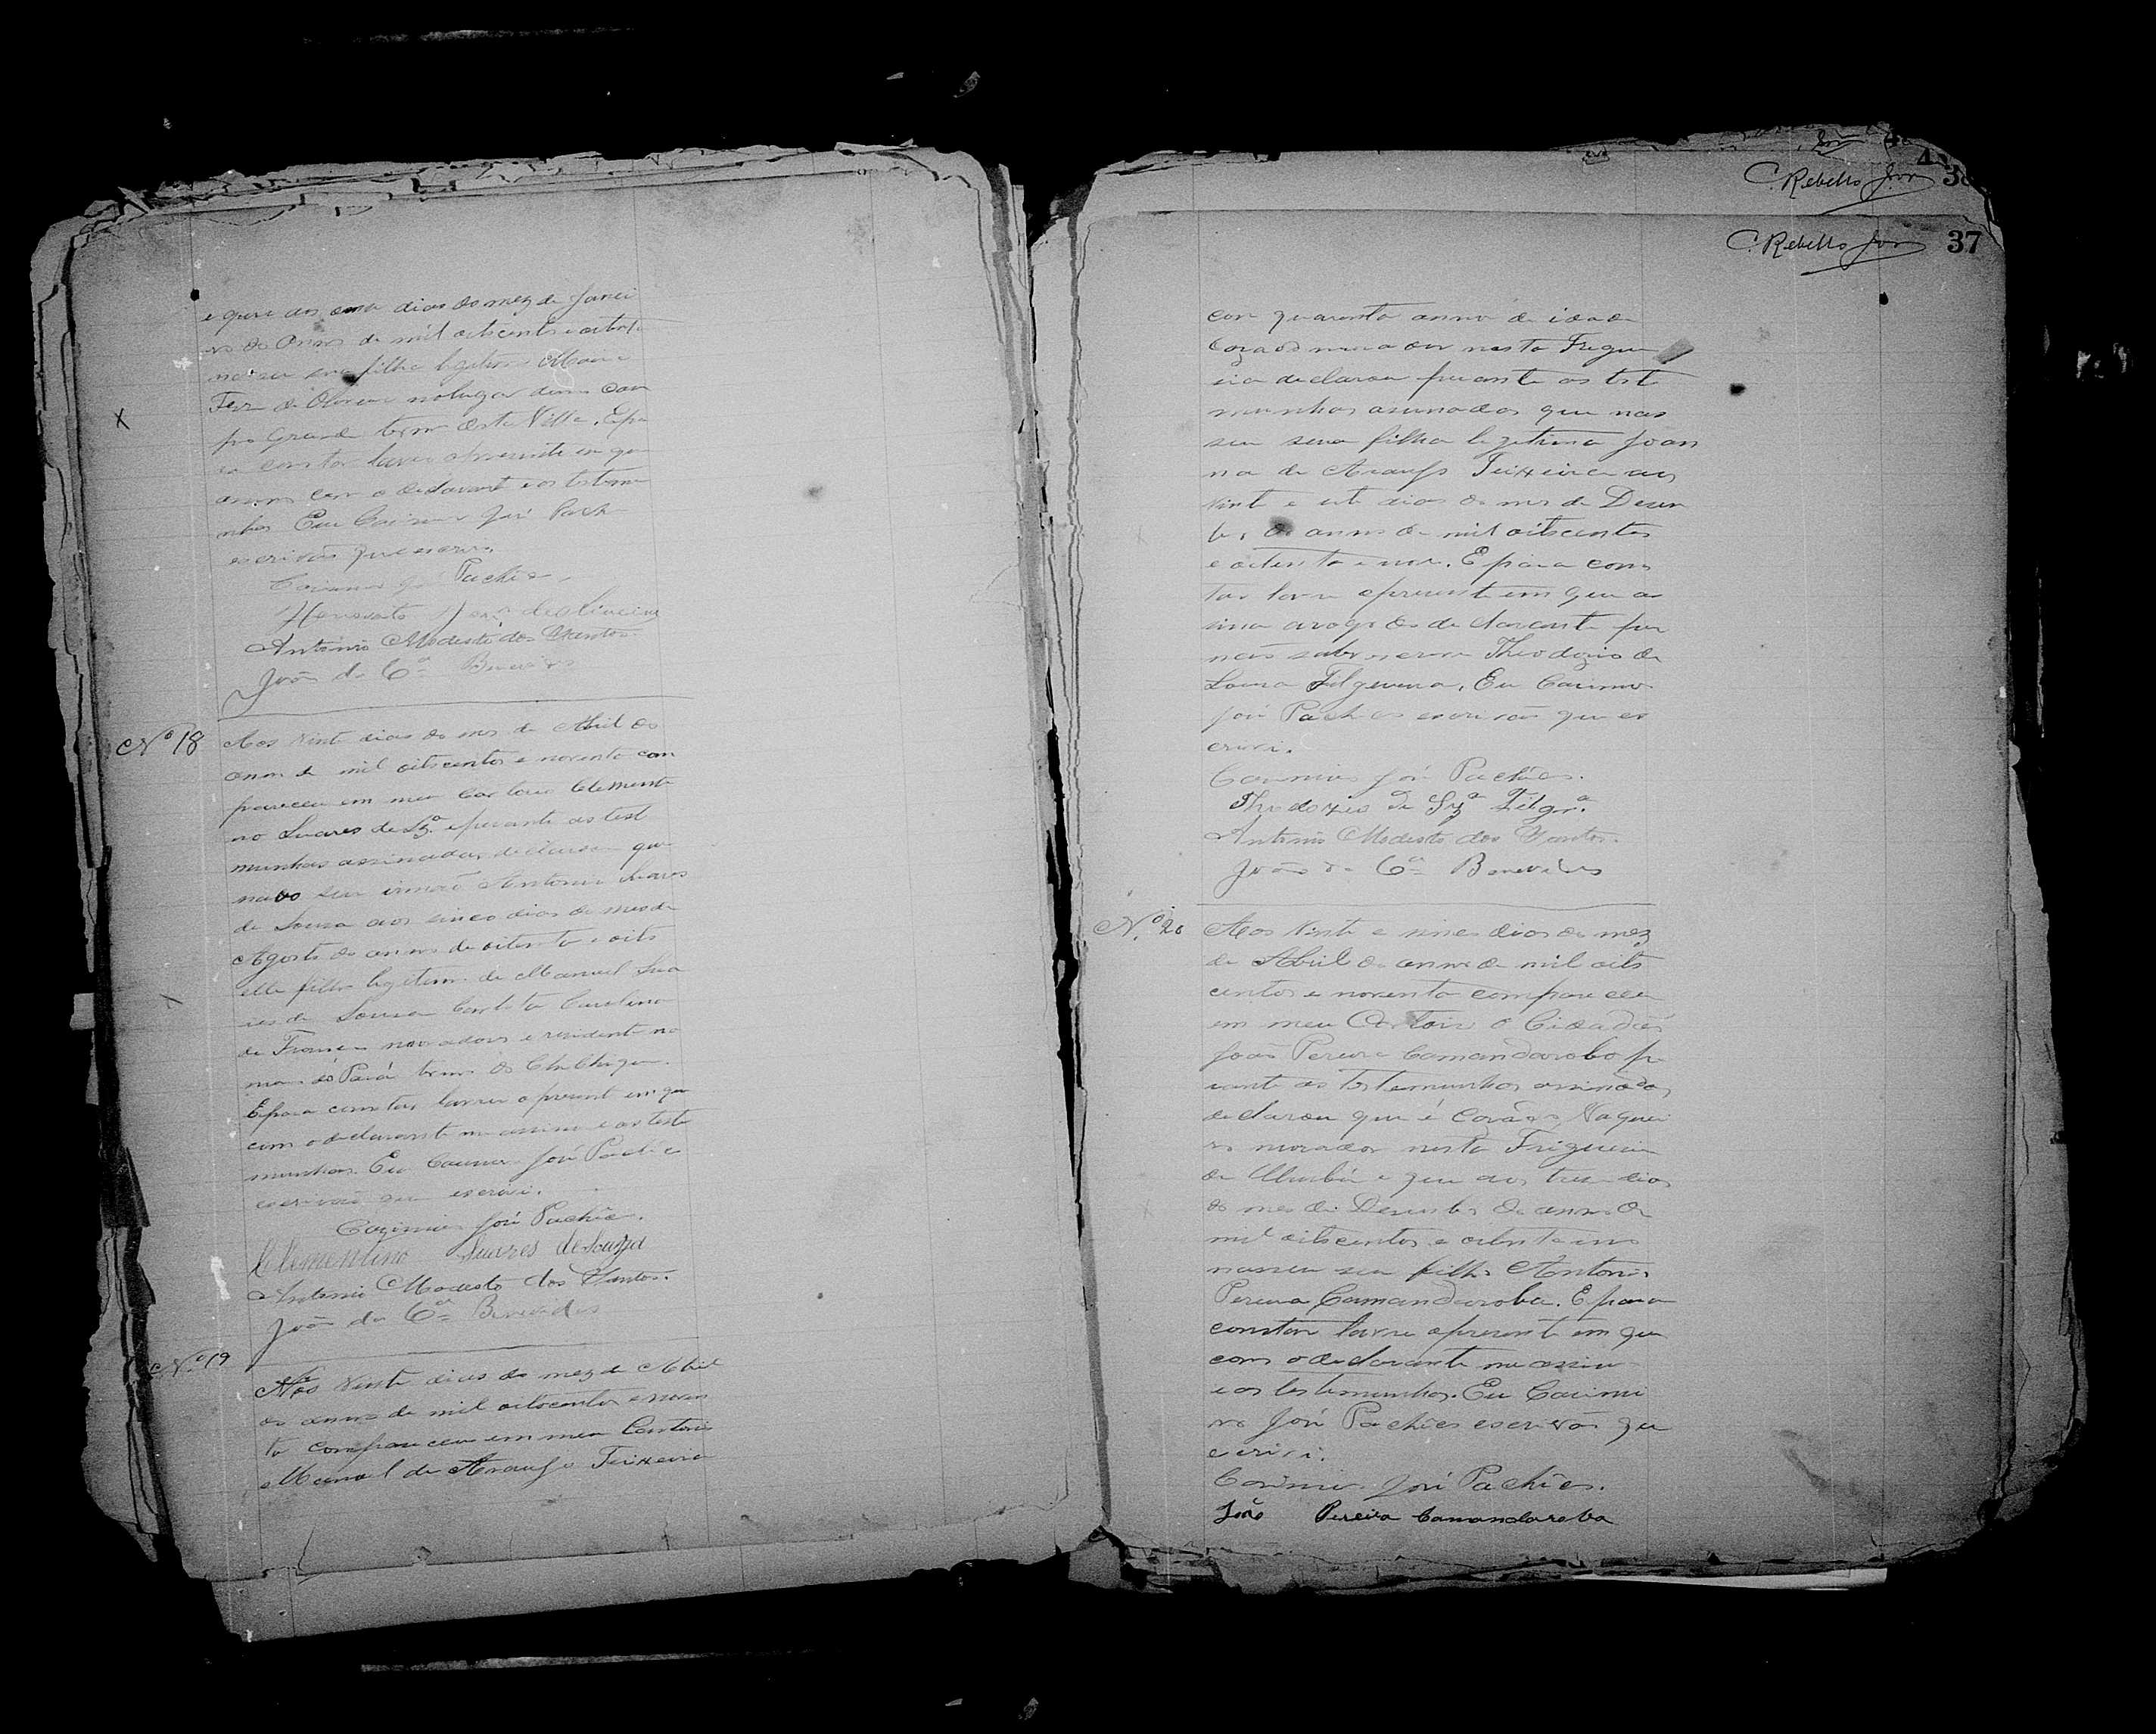 e que aos dias do mez de Janei
ro do Anno de mil oitocentos e
nasceu sua filha legitima Maria
de Oliveira no lugar Cam
po Grande termo desta Villa. E pa
ra constar lavrei o presente em que
assigno com o declarante e as testemu
nhas Eu Casimiro José Pach
escrivão que escrevi.
Casimiro José Pachêco
de Oliveira
Antonio Modesto dos Santos.
João da C.ª Benevides
Nº 18
Aos vinte dias do mes de Abril do
anno de mil oitocentos e noventa com
pareceu em meu Cartorio Clementi
no Suares de Sz.ª e perante as test
munhas assinadas declarou que
seu irmão Antonio Suares
de Sousa aos sinco dias do mes de
Agosto do anno de oitenta e oito
elle filho legitimo de Manuel Sua
res de Sousa Carlota Carolina
de França moradores e residente no
do Pará termo do
E para constar lavrei o present em que
com o declarante me assino e as teste
munhas. Eu Casimiro José Pachêco
escrivão que escrevi.
Cazimiro José Pachêco.
Clementino Suares de Souza
Antonio Modesto dos Santos.
João da C.ª Benevides
Nº 19
Aos Vinte dias do mez de Abril
do anno de mil oitocentos e noven
ta compareceu em meu Cartorio
Manoel de Araujo Teixeira
C. Rebello Jor 38
C. Rebello Jor 37
com quarenta annos de idade
Cazado morador nesta Fregue
sia declarou perante as teste
munhas assinadas que nas
seu sua filha legitima Joan
na de Araujo Teixeira aos
vinte e sete dias do mes de Desem
bro do anno de mil oitocentos
e oitenta e nove. E para cons
tar lavrei o present em que as
sina arogo do declarante por
não saber escrever Theodozio de
Sousa Filgueira. Eu Casimiro
José Pachêco escrivão que es
crivi.
Casimiro José Pachêco.
Theodozio de Sz.ª Filgr.ª
Antonio Modesto dos Santos.
João da C.ª Benevides
Nº 20
Aos Vinte e sinco dias do mez
de Abril do anno de mil oito
centos e noventa compareceu
em meu Cartorio o Cidadão
João Pereira Camandaroba pe
rante as testemunhas assinadas
declarou que é Cazado Vaquei
ro morador nesta Freguesia
de Urubú e que aos tres dias
do mes de Desembro do anno de
mil oitocentos e oitenta e nove
nasseu seu filho Antonio
Pereira Camandaroba. E para
constar lavrei o present em que
com o declarante me assino
e as testemunhas. Eu Casimi
ro José Pachêco escrivão que
escrivi.
Casimiro José Pachêco.
João Pereira Camandaroba